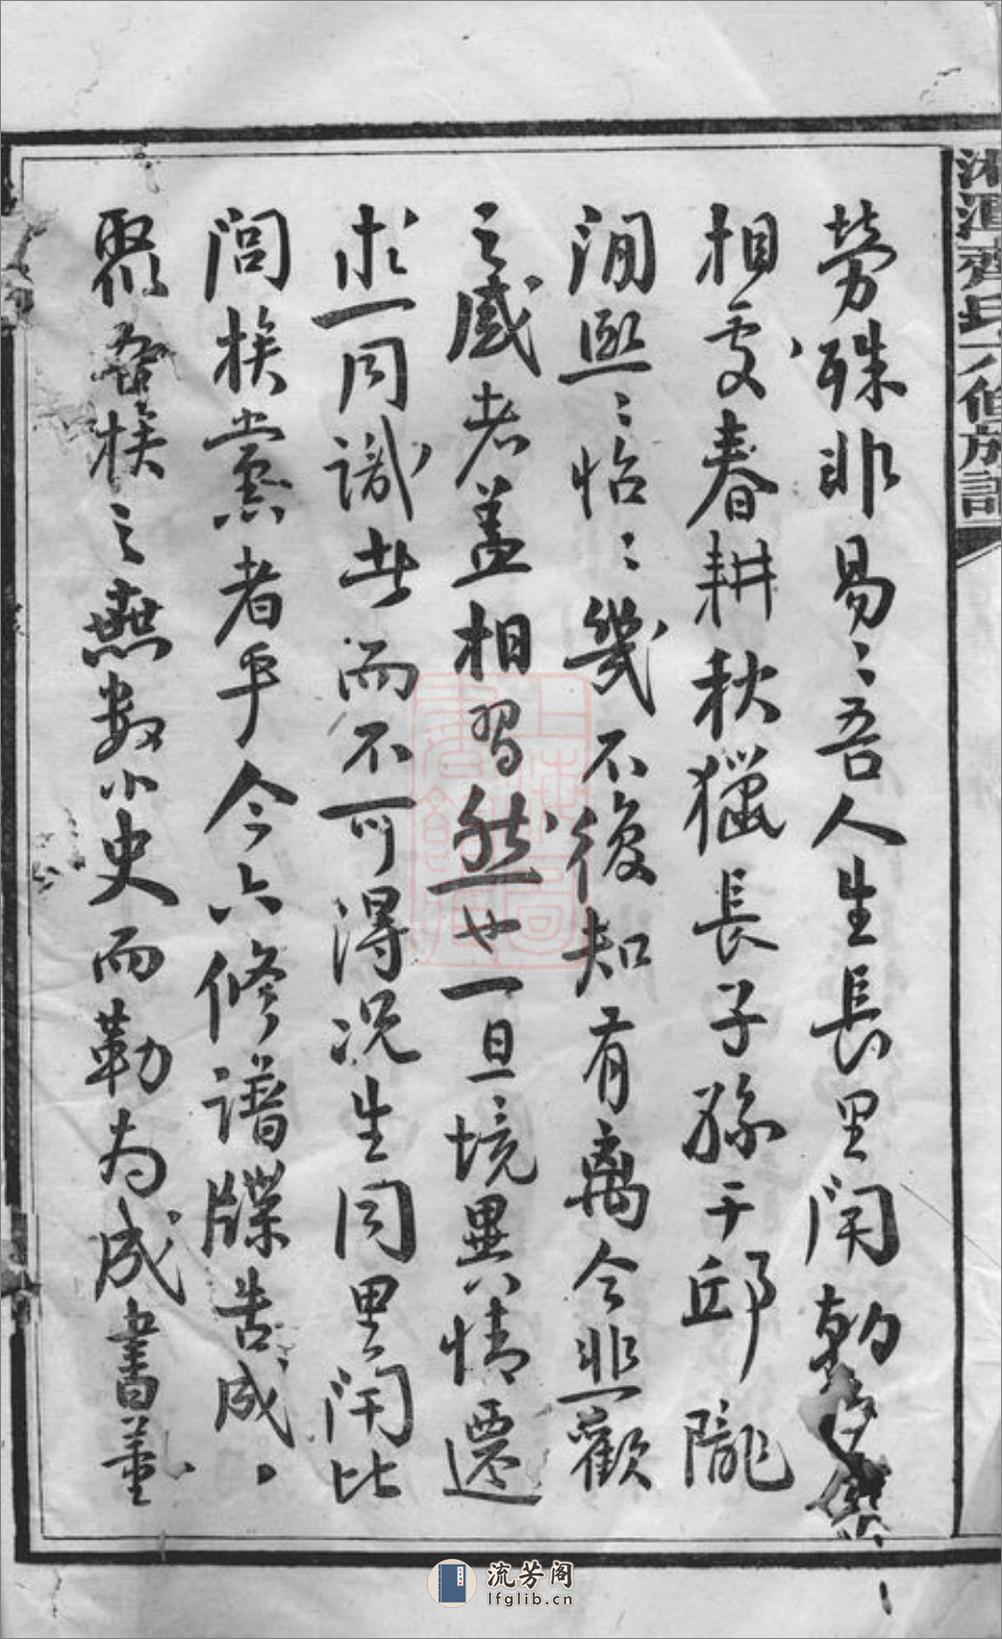 湘潭齊氏六修族譜
勞殊非易易吾人生長里閈朝夕
相處春耕秋獵長子孫于邱隴
間熙熙怡怡幾不復知有離合悲歡
之感者蓋相習然也一旦境異情遷
求一同識者而不可得況生同里閈比
閭族黨者乎今六修譜牒告成
聚吾族之燕數小史而勒為成書董
流芳阁
lfglib.cn